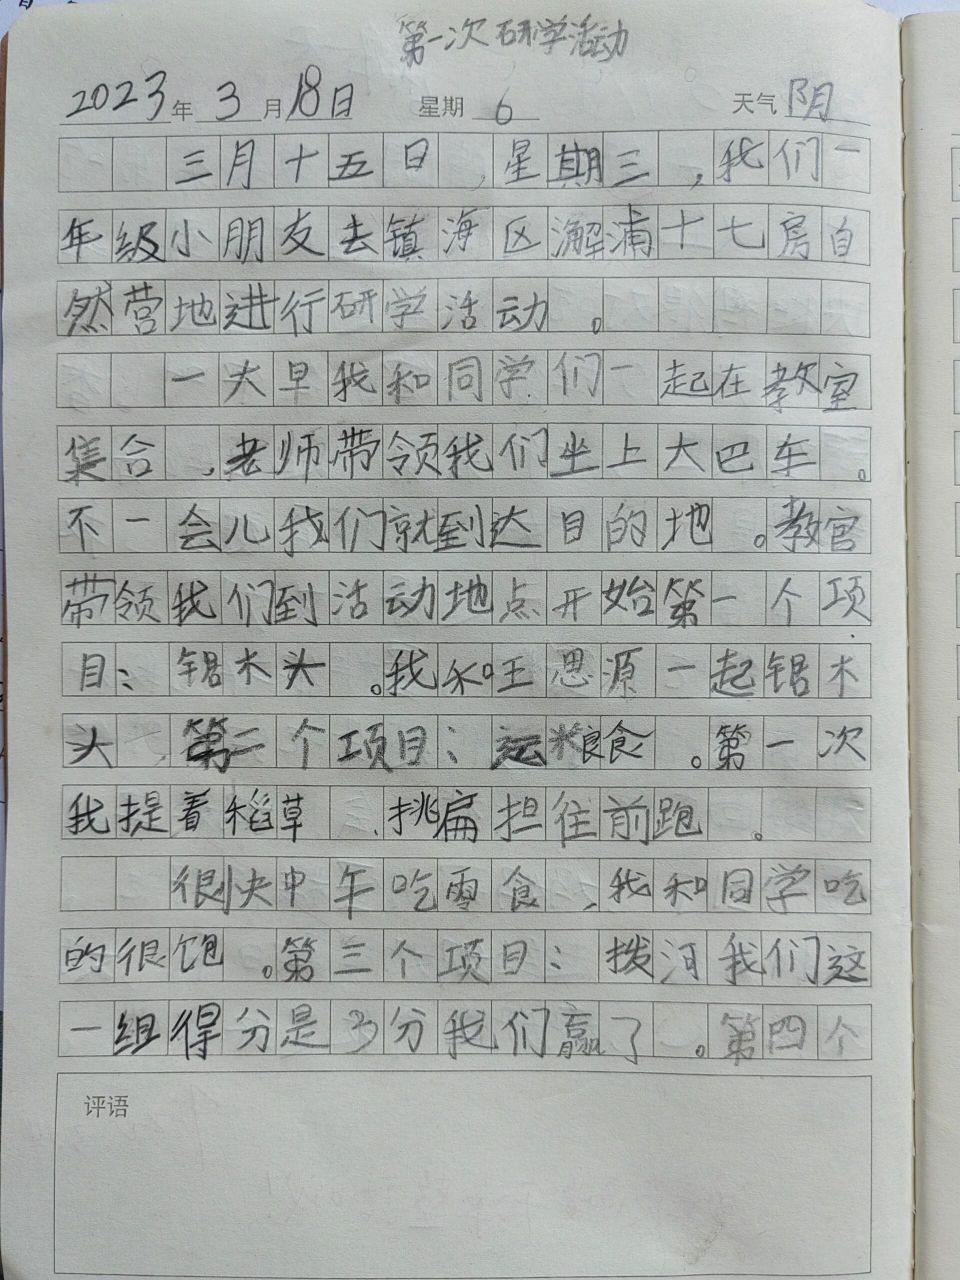 第一次研学活动
2023年 3月18日 星期 6 天气 阴
三月十五日,星期三,我们一
年级小朋友去镇海区澥浦十七房自
然营地进行研学活动。
一大早我和同学们一起在教室
集合,老师带领我们坐上大巴车。
不一会儿我们就到达目的地。教官
带领我们到活动地点开始第一个项
目:锯木头。我和王思源一起锯木
头,第二个项目:运粮食。第一次
我提着稻草、挑扁担往前跑。
很快中午吃零食,我和同学吃
的很饱。第三个项目:拨河我们这
一组得分是3分我们赢了。第四个
评语